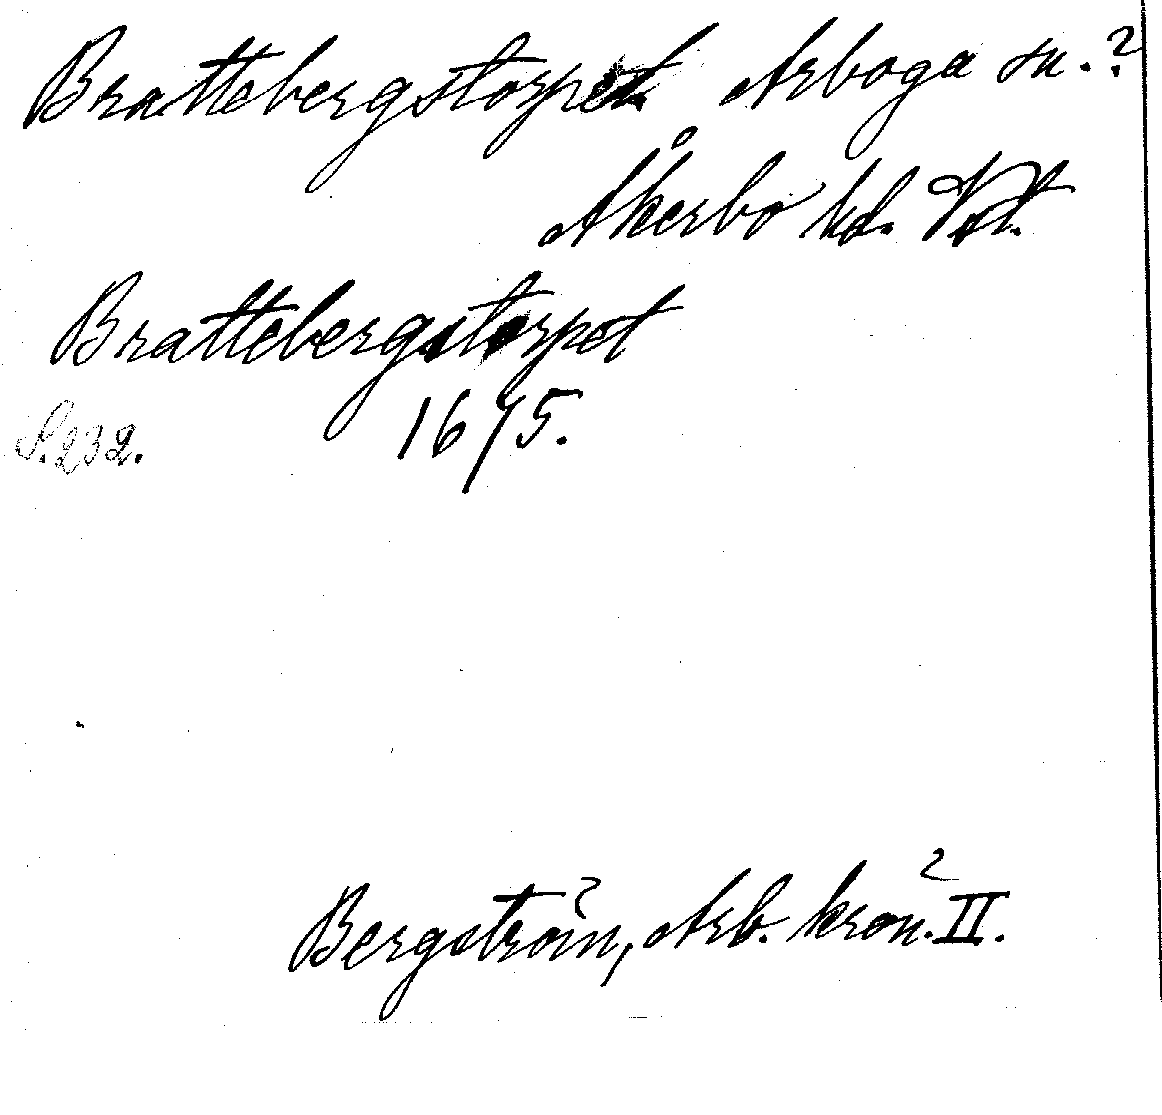 Brattebergstorpet Arboga sn.?
Åkerbo hd. Vstl.
Brattebergstorpet
S. 232. 1675.
Bergström, Arb. krön. II.